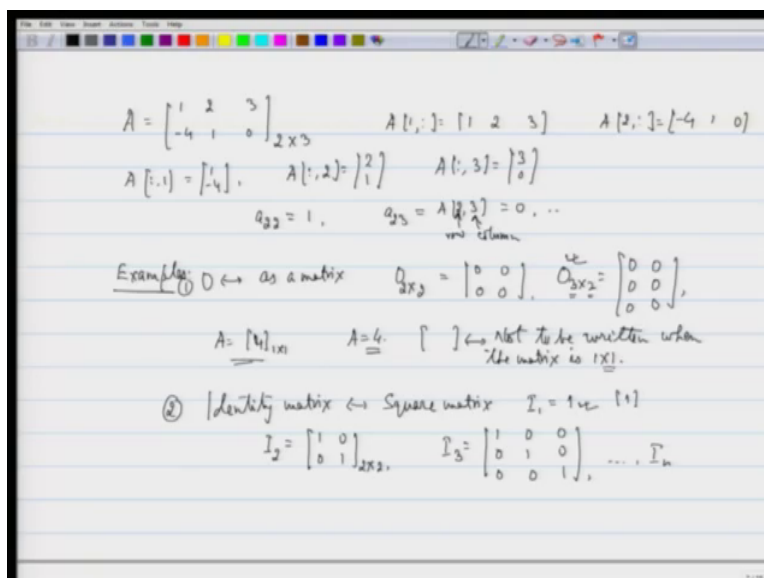 File Edit View Insert Actions Tools Help
A = [1 2 3; -4 1 0]_{2×3} A[1,:] = [1 2 3] A[2,:] = [-4 1 0]
A[:,1] = [1; -4], A[:,2] = [2; 1] A[:,3] = [3; 0]
a_{22} = 1, a_{23} = A[2,3] = 0, ..
row column
Examples: ① 0 ↔ as a matrix 0_{2×2} = [0 0; 0 0], 0_{3×2} = [0 0; 0 0; 0 0],
A = [4]_{1×1} A = 4. [ ] ↔ Not to be written when
the matrix is 1×1.
② Identity matrix ↔ Square matrix I_1 = 1 [1]
I_2 = [1 0; 0 1]_{2×2}, I_3 = [1 0 0; 0 1 0; 0 0 1], ...., I_n